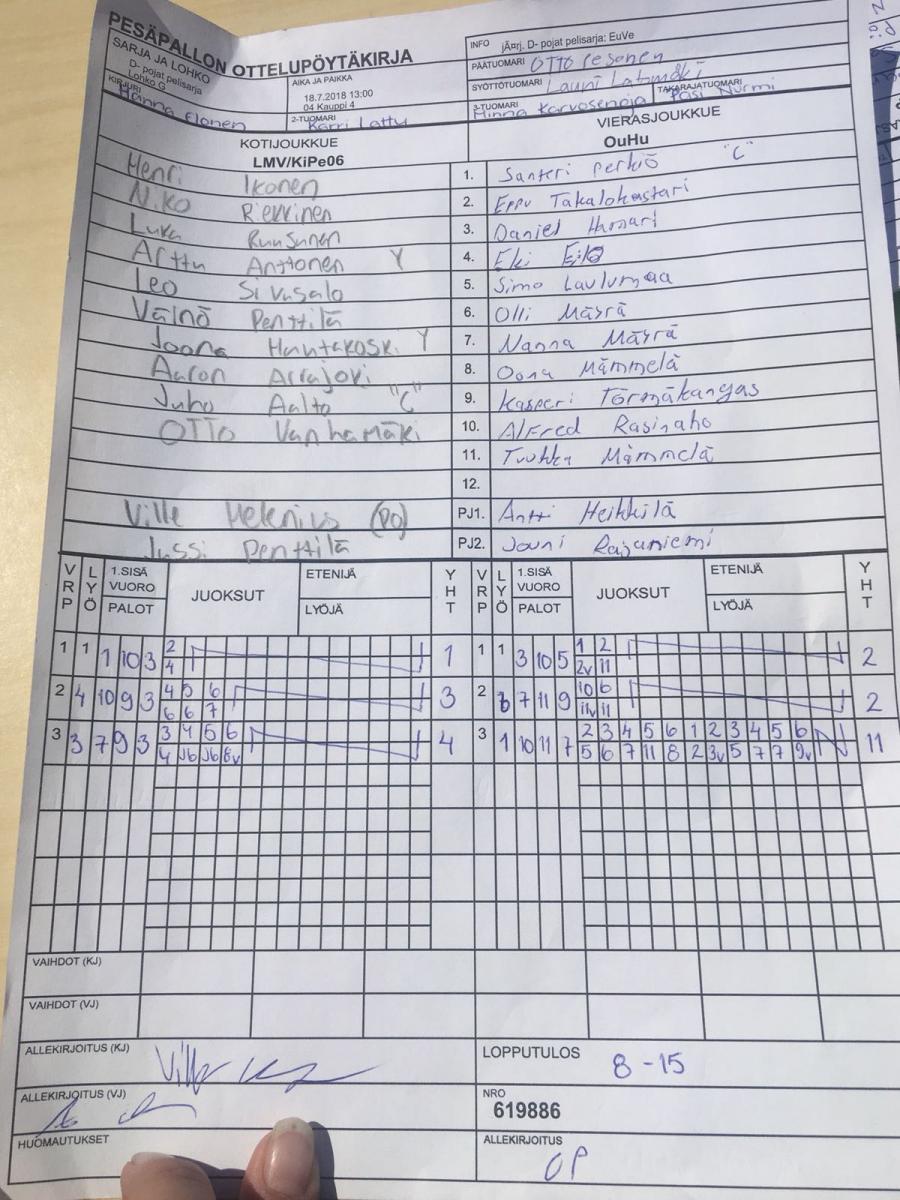 PESÄPALLON OTTELUPÖYTÄKIRJA
SARJA JA LOHKO
D- pojat pelisarja
Lohko G
AIKA JA PAIKKA
18.7.2018 13:00
04 Kauppi 4
INFO jÃ¤rj. D- pojat pelisarja: EuVe
PÄÄTUOMARI OTTO
SYÖTTÖTUOMARI Launi
KIRJURI Hanna Elonen
2-TUOMARI Karri Lattu
3-TUOMARI Minna Karvosenoja
TAKARAJATUOMARI Pasi Nurmi
KOTIJOUKKUE
LMV/KiPe06
VIERASJOUKKUE
OuHu
Henri Ikonen 1. Santeri Perkiö "C"
Niko Riekkinen 2. Eppu Takalokastari
Luka Ruusunen 3. Daniel
Arttu Anttonen Y 4. Eki
Leo Sivusalo 5. Simo Laulumaa
Väinö Penttilä 6. Olli Mäyrä
Joona Hautakoski Y 7. Nanna Mäyrä
Aaron Arrajoki 8. Oona Mämmelä
Juho Aalto "C" 9. Kasperi Törmäkangas
OTTO Vanhamäki 10. Alfred Rasinaho
11. Tuukka Mämmelä
12.
Ville Helenius (PO) PJ1. Antti Heikkilä
Jussi Penttilä PJ2. Jouni Rajaniemi
VRP LYÖ 1.SISÄ VUORO PALOT JUOKSUT ETENIJÄ LYÖJÄ YHT VRP LYÖ 1.SISÄ VUORO PALOT JUOKSUT ETENIJÄ LYÖJÄ YHT
1 1 1 10 3 2 1 1 1 3 10 5 1 2 2
4 2v 11
2 4 10 9 3 4 5 6 3 2 6 7 11 9 10 6 2
6 6 7 11v 11
3 3 7 9 3 3 4 5 6 4 3 1 10 11 7 2 3 4 5 6 1 2 3 4 5 6 11
4 J6 J6 8v 5 6 7 11 8 2 3v 5 7 7 9v
VAIHDOT (KJ)
VAIHDOT (VJ)
ALLEKIRJOITUS (KJ) LOPPUTULOS 8 - 15
ALLEKIRJOITUS (VJ) NRO
619886
HUOMAUTUKSET ALLEKIRJOITUS
OP